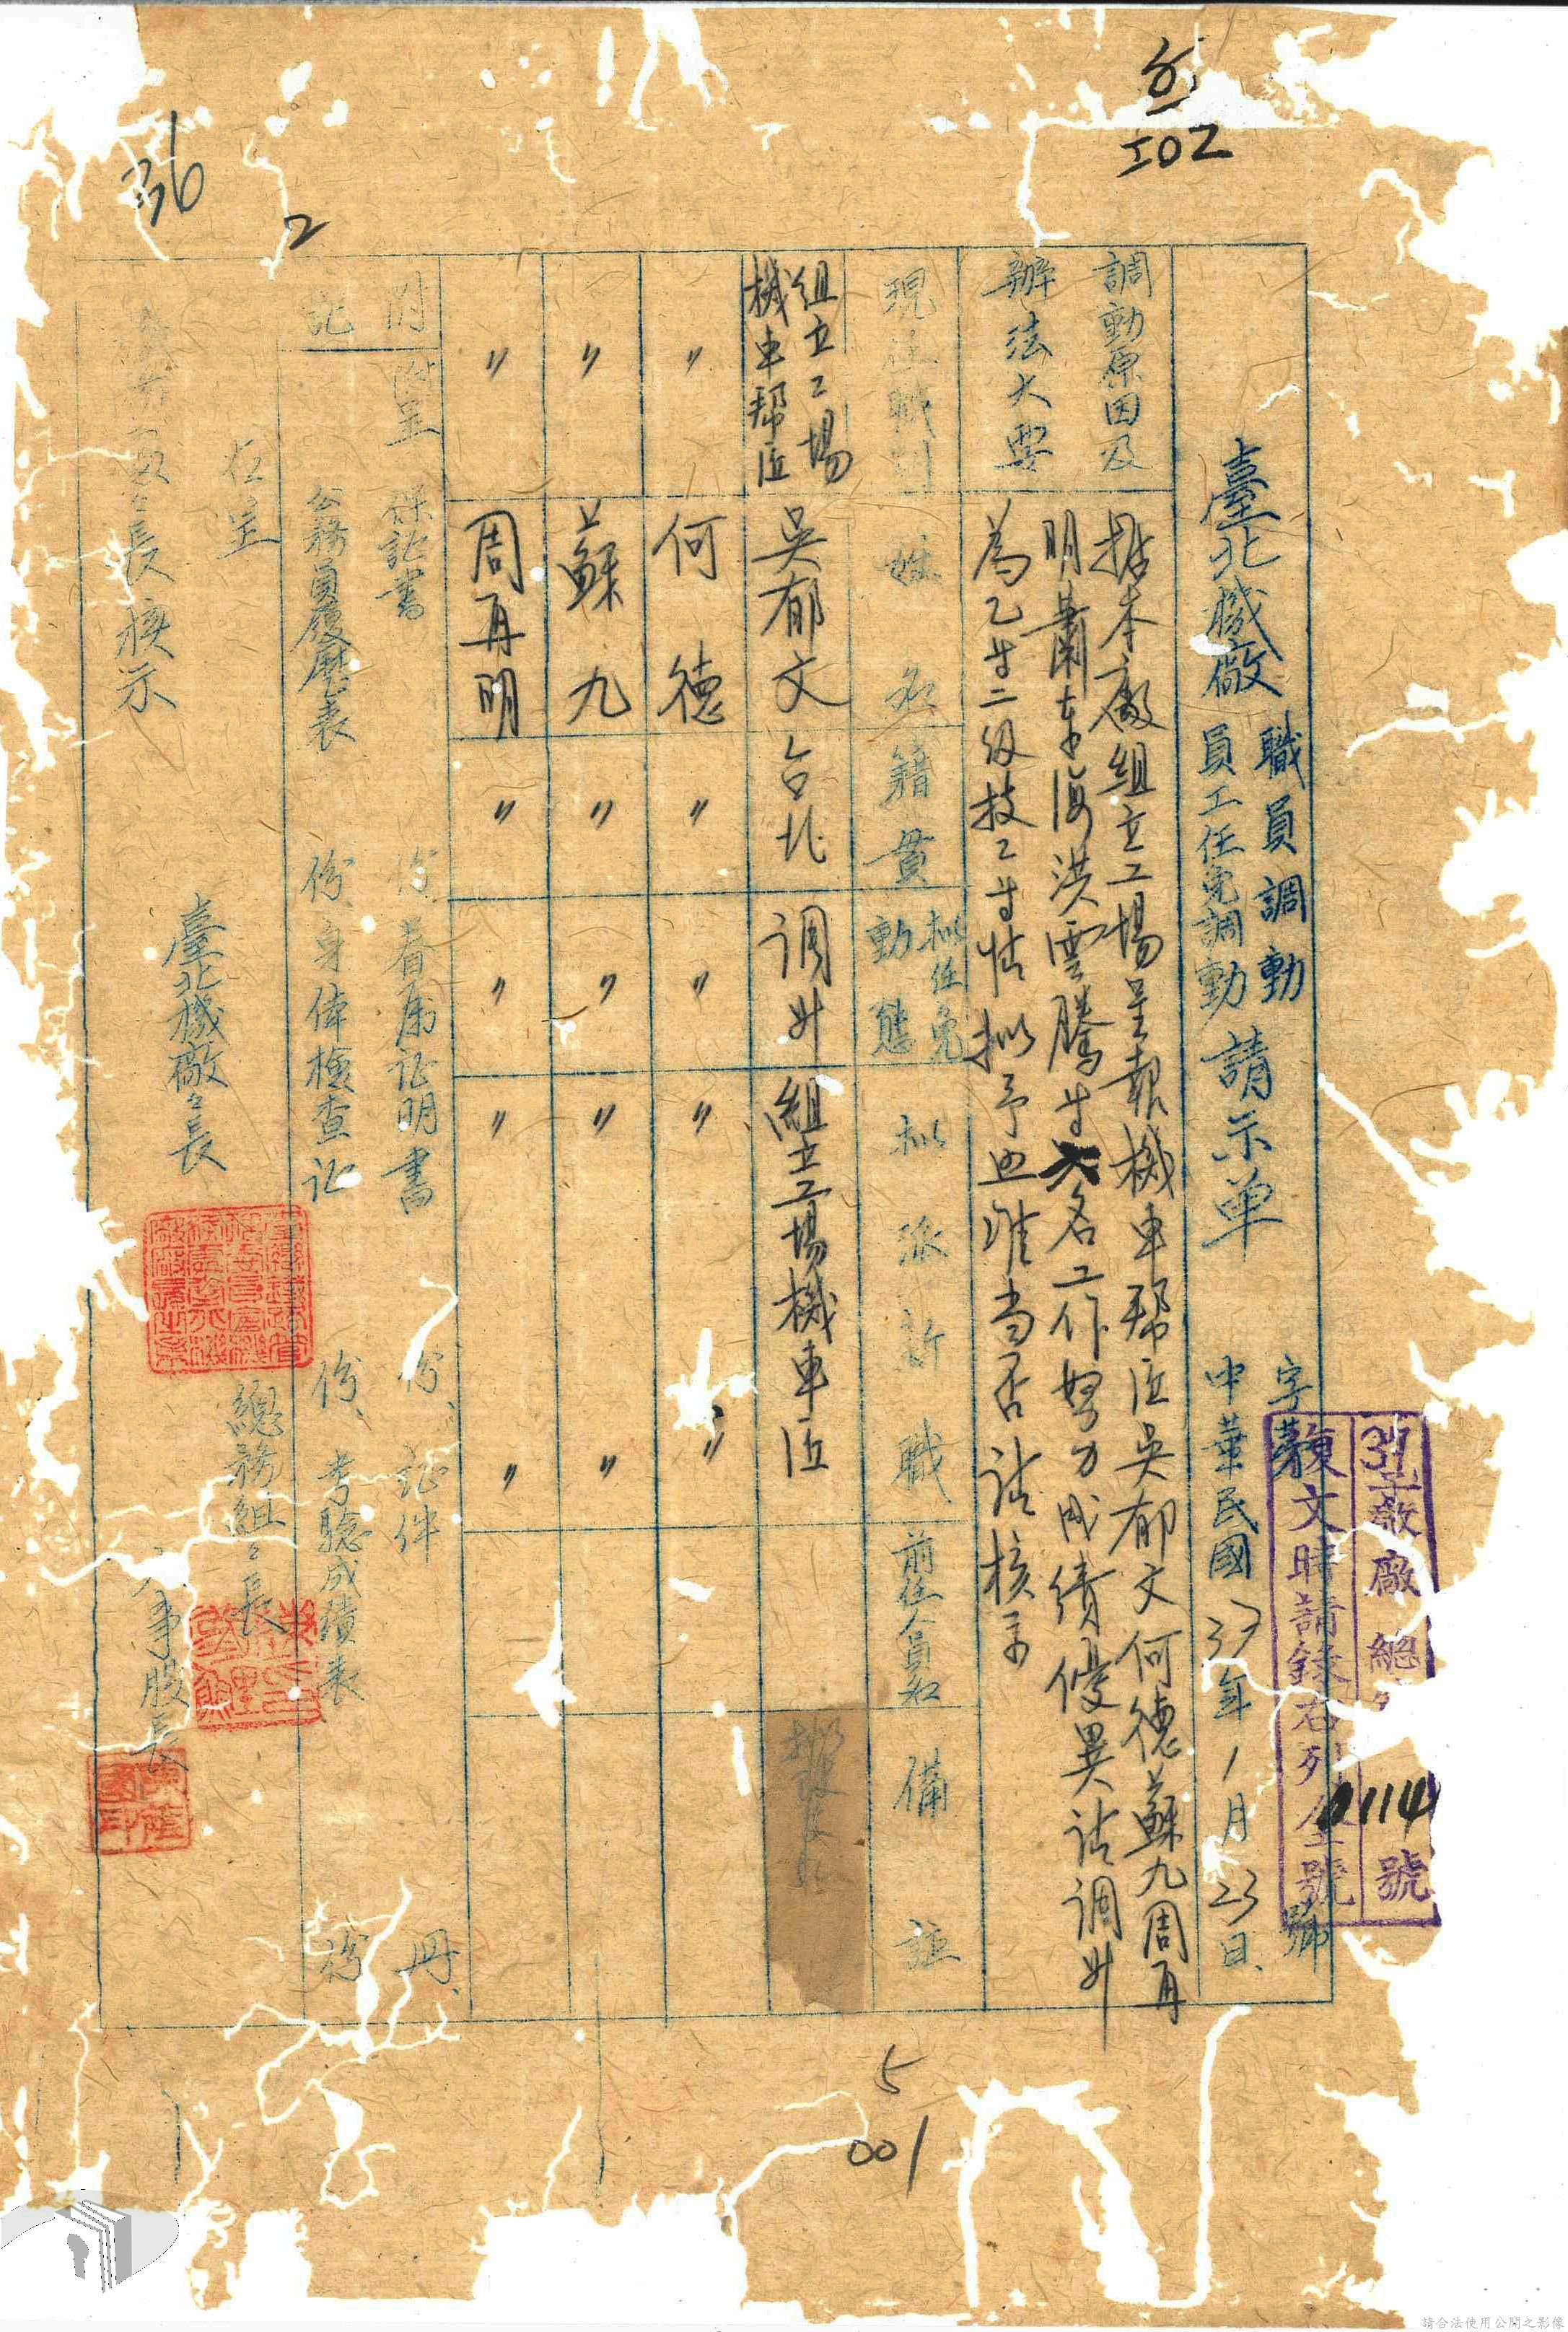 36
2
102
職員調動
臺北機廠 員工任免調動 請示单
字 號
中華民國37年1月23日
37 北機廠總 0114 號
覆文時請錄右列全號
調動原因及
辦法大要
据本廠組立工場呈報機車帮匠吳郁文何德蘇九周再
明蕭東海洪雲騰等 名工作努力成績優異請調升
為乙等二級技工等情拟予照准当否請核示
現任職別
姓名
籍貫
拟任免
動態
拟派新職
前任人員名
備註
組立工場
機車帮匠
吳郁文
台北
调升
組立工場機車匠
〃
何德
〃
〃
〃
〃
〃
蘇九
〃
〃
〃
〃
〃
周再明
〃
〃
〃
〃
附記
附呈
保記書 份 眷屬证明書 份、証件 冊、
公務員履歷表 份、身体檢查记 份、考驗成績表 份
右呈
長核示
臺北機廠々長
總務組々長
人事股長
5
001
請合法使用公開之影像